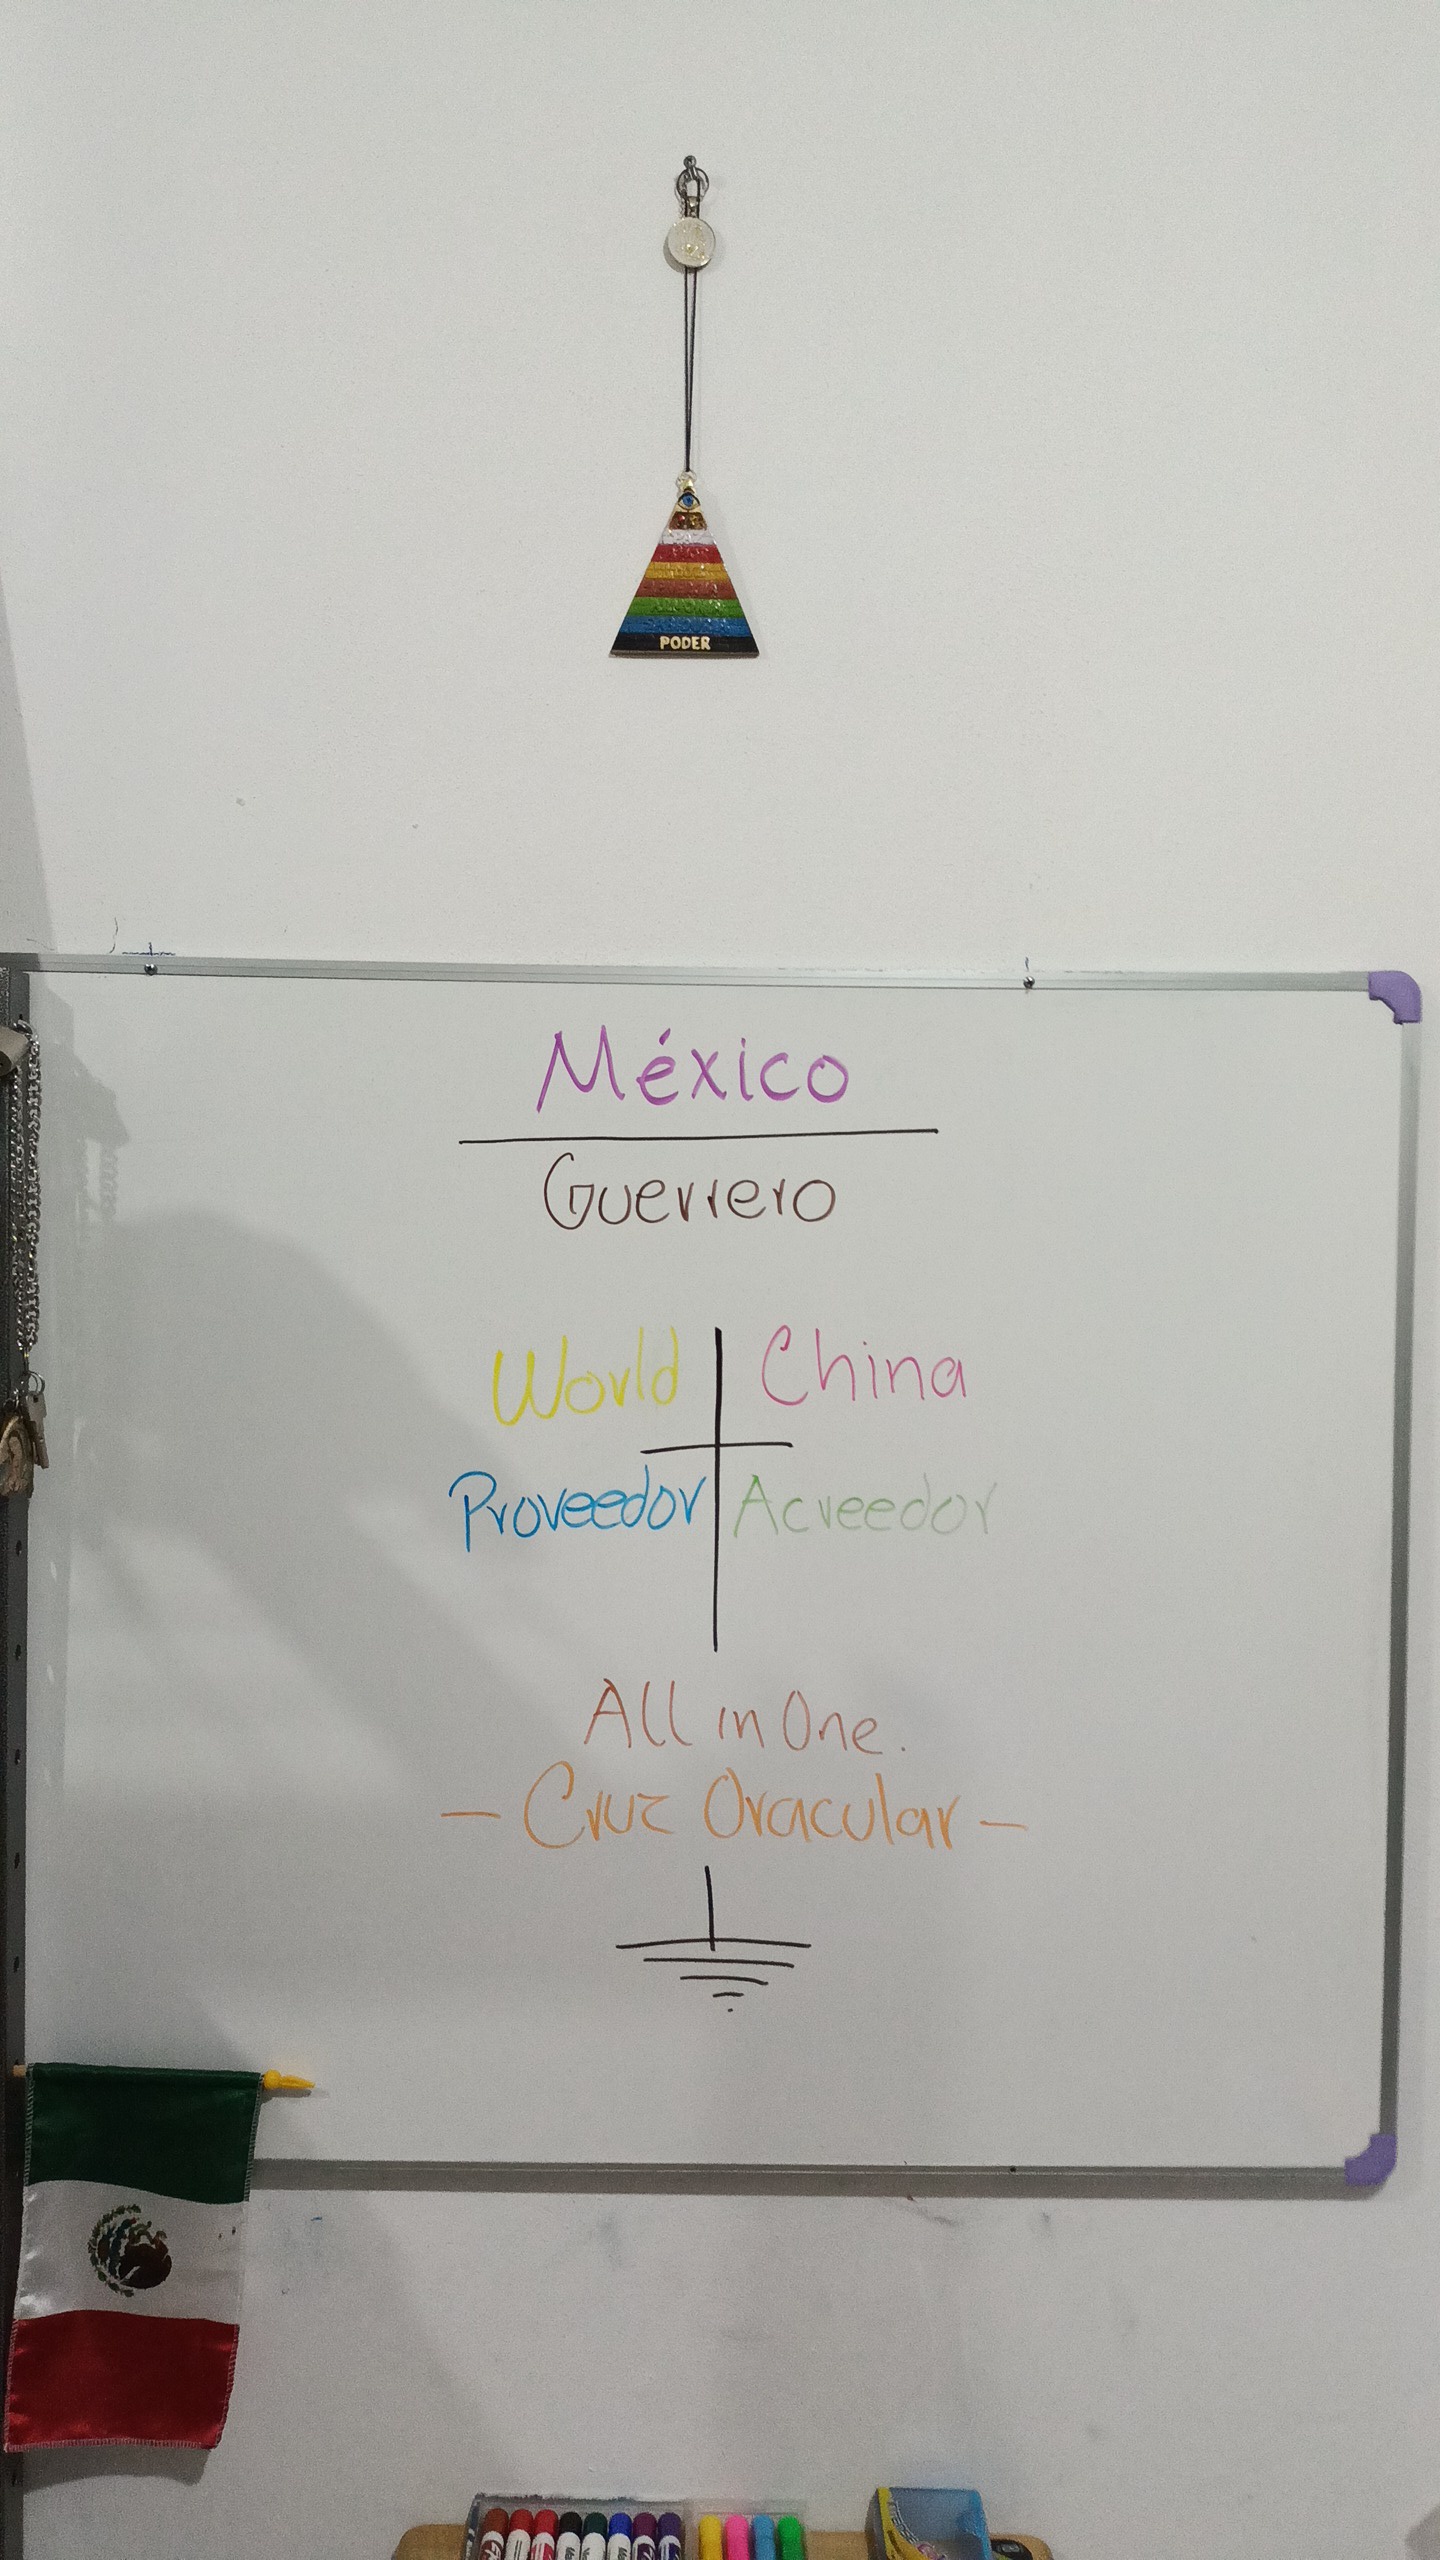 PODER
México
Guerrero
World China
Proveedor Acreedor
All in One.
- Cruz Oracular -